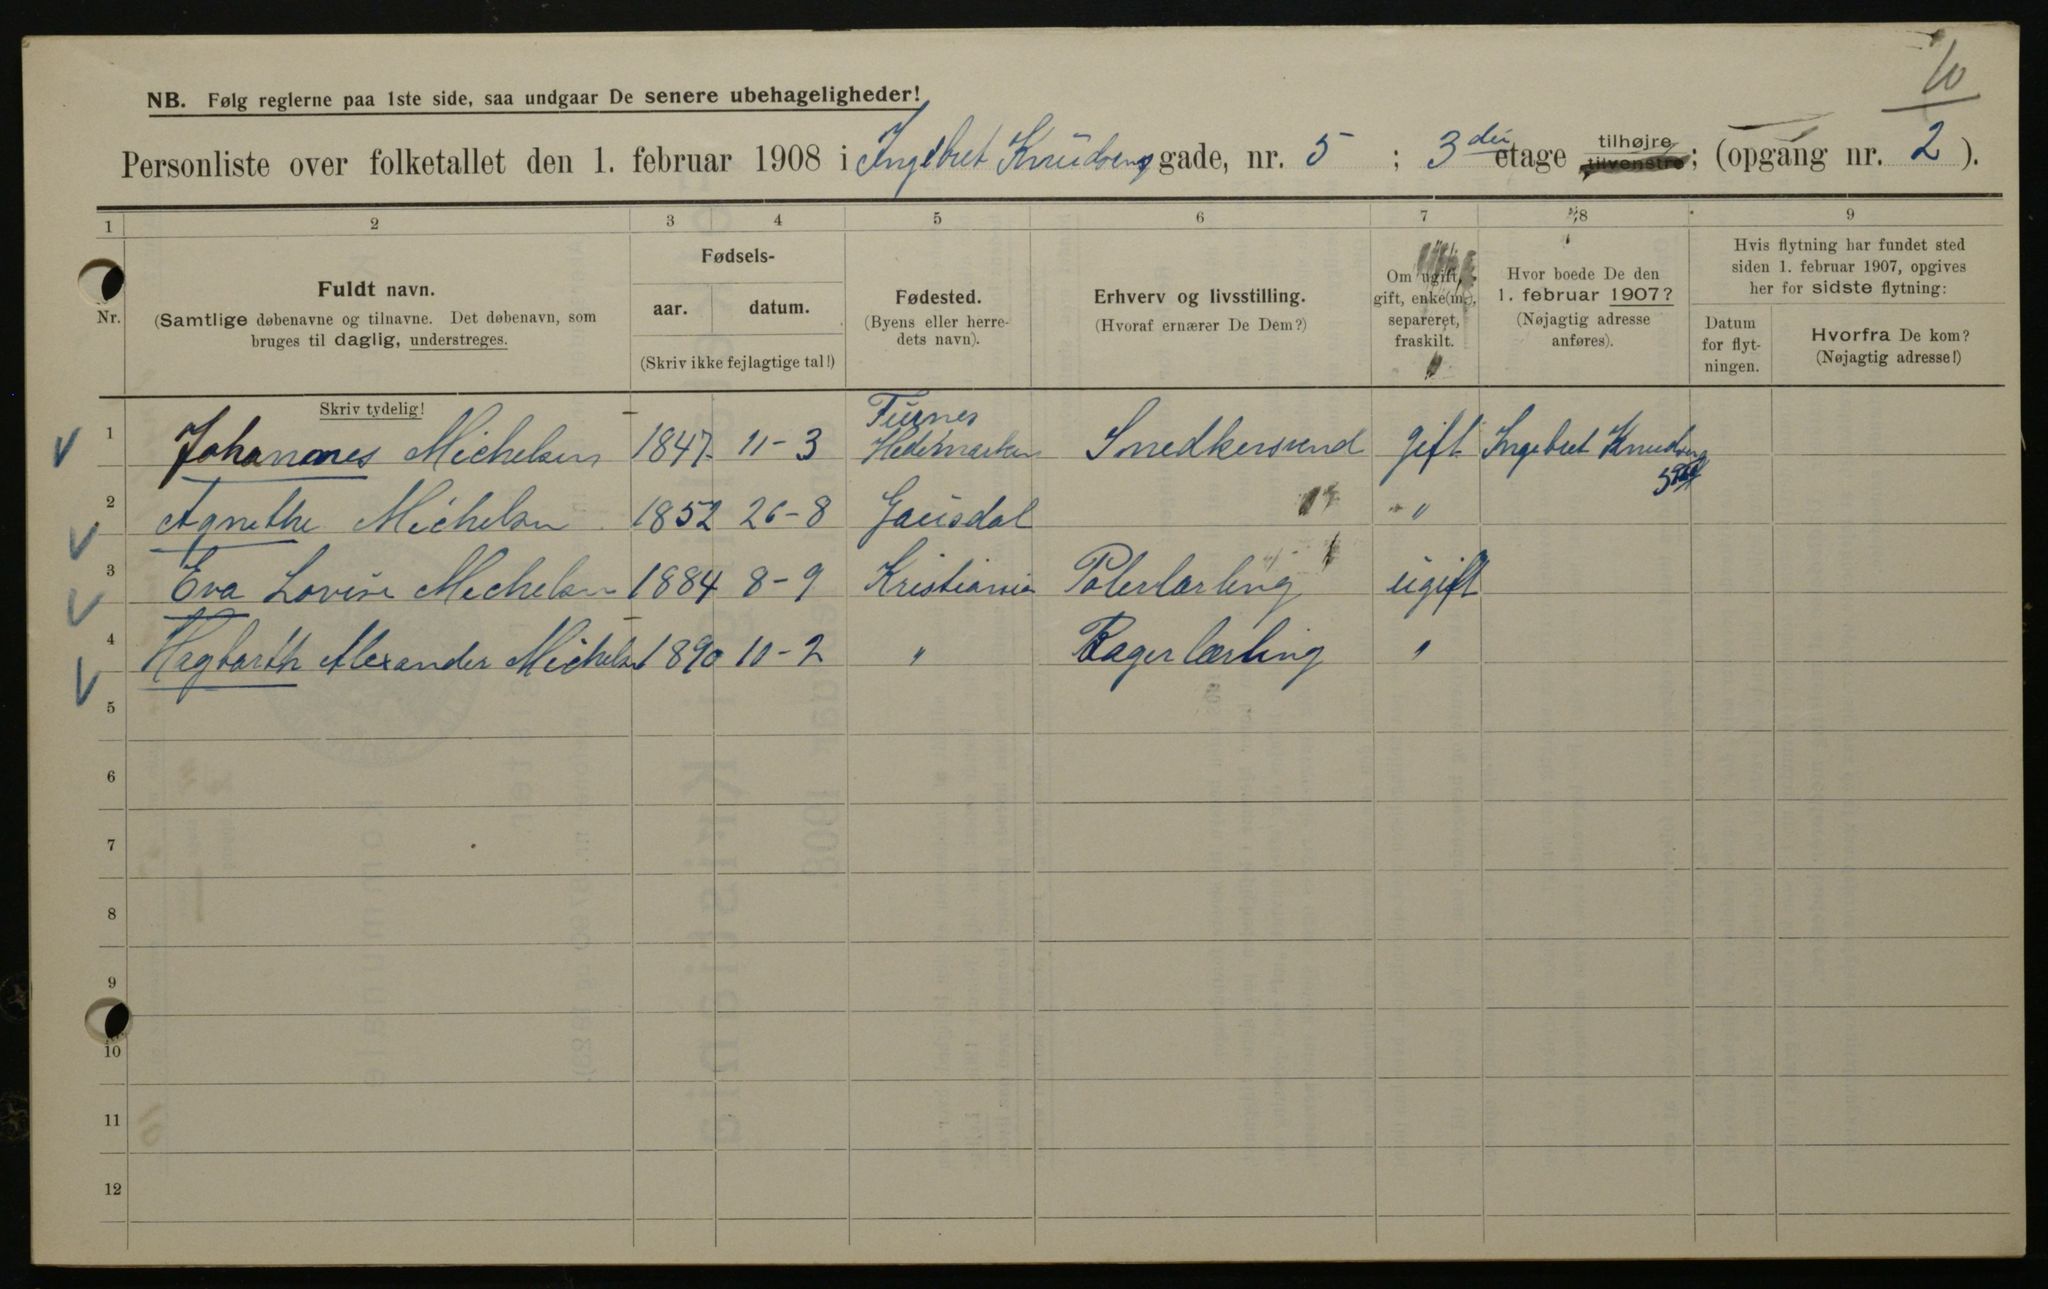 10
NB. Følg reglerne paa 1ste side, saa undgaar De senere ubehageligheder!
Personliste over folketallet den 1. februar 1908 i Ingebret Knudsens gade, nr. 5 ; 3die etage tilhøjre tilvenstre; (opgang nr. 2 ).
1 2 3 4 5 6 7 8 9
Nr.
Fuldt navn.
(Samtlige døbenavne og tilnavne. Det døbenavn, som
bruges til daglig, understreges.
Fødsels-
aar. datum.
(Skriv ikke fejlagtige tal!)
Fødested.
(Byens eller herre-
dets navn).
Erhverv og livsstilling.
(Hvoraf ernærer De Dem?)
Om ugift,
gift, enke(m.),
separeret,
fraskilt.
Hvor boede De den
1. februar 1907?
(Nøjagtig adresse
anføres).
Hvis flytning har fundet sted
siden 1. februar 1907, opgives
her for sidste flytning:
Datum
for flyt-
ningen.
Hvorfra De kom?
(Nøjagtig adresse!)
Skriv tydelig!
1 Johannes Michelsen 1847 11-3 Furnes Hedemarken Snedkersvend gift Ingebret Knudsens
5
2 Agnethe Michelsen 1852 26-8 Gausdal "
3 Eva Lovise Michelsen 1884 8-9 Kristiania Polerlærling ugift
4 Hagbarth Alexander Michelsen 1890 10-2 " Bagerlærling "
5
6
7
8
9
10
11
12